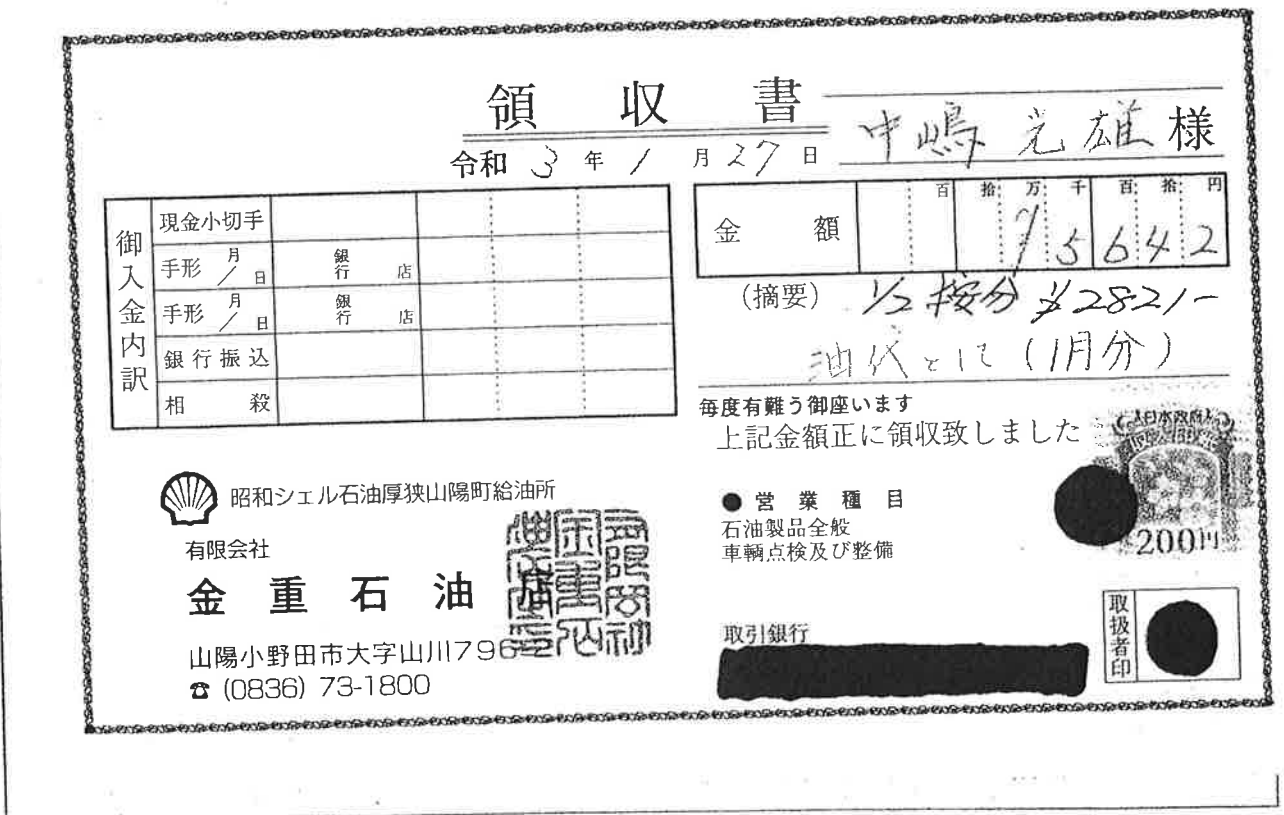 領収書
中嶋光雄様
令和3年1月27日
御入金内訳
現金小切手
手形 月/日 銀行 店
手形 月/日 銀行 店
銀行振込
相殺
金額
百 拾 万 千 百 拾 円
¥5642
(摘要) 1/2按分 ¥2821-
油代とし(1月分)
毎度有難う御座います
上記金額正に領収致しました
日本政府
200円
昭和シェル石油厚狭山陽町給油所
有限会社
金重石油店
山陽小野田市大字山川796
☎ (0836) 73-1800
●営業種目
石油製品全般
車輌点検及び整備
取引銀行
取扱者印